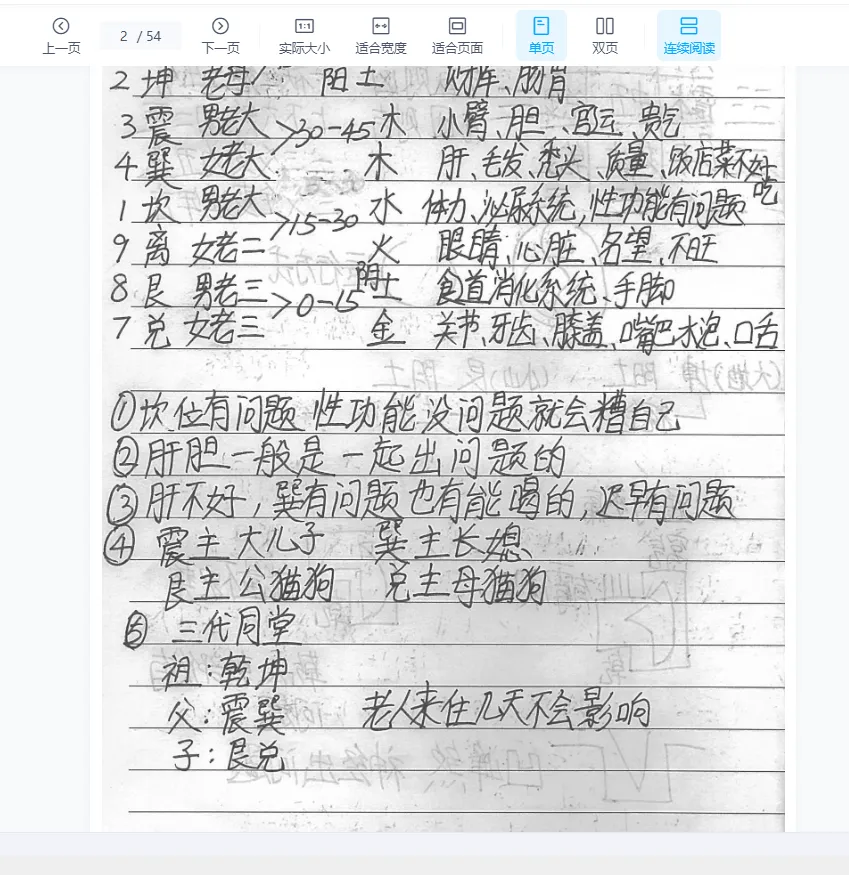 上一页 2 / 54 下一页 1:1 实际大小 适合宽度 适合页面 单页 双页 连续阅读
2 坤 老母 阴土 、肠胃
3 震 男老大 >30-45 木 小臂、胆、官运、贵气
4 巽 女老大 木 肝、毛发、秃头、质量、饭店菜不好吃
1 坎 男老大 >15-30 水 体力、泌尿系统,性功能有问题
9 离 女老二 火 眼睛、心脏、名望、不旺
8 艮 男老三 >0-15 阴土 食道消化系统、手脚
7 兑 女老三 金 关节、牙齿、膝盖、嘴巴水泡、口舌
①坎位有问题 性功能没问题就会糟自己
②肝胆一般是一起出问题的
③肝不好,巽有问题也有能喝的,迟早有问题
④震主大儿子 巽主长媳
艮主公猫狗 兑主母猫狗
⑤ 三代同堂
祖:乾坤
父:震巽 老人来住几天不会影响
子:艮兑